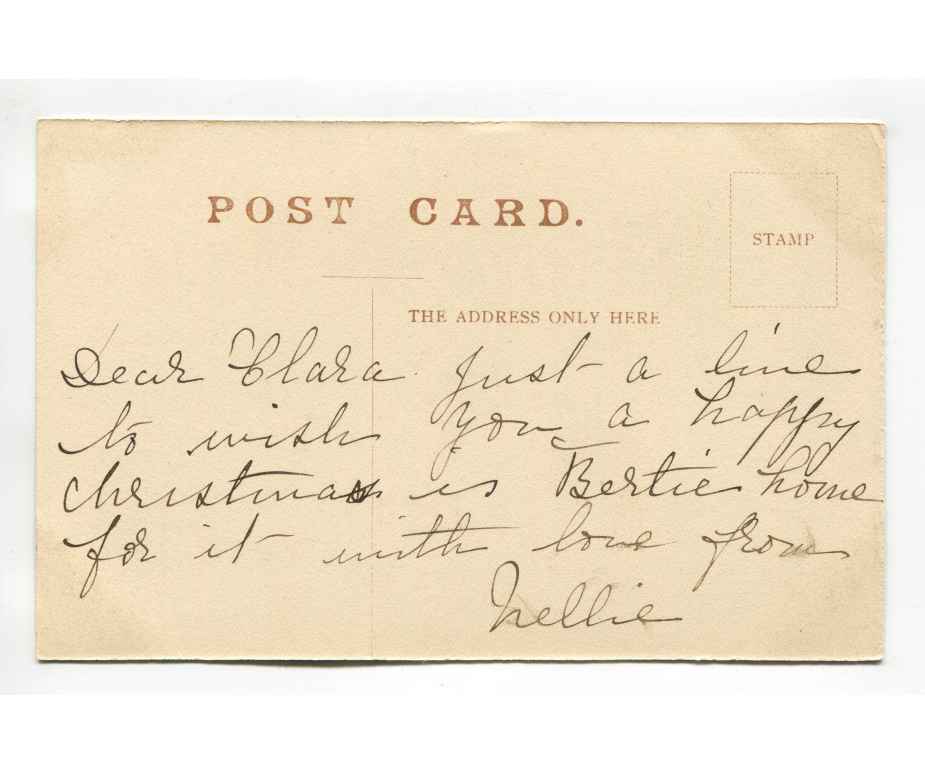 POST CARD.
STAMP
THE ADDRESS ONLY HERE
Dear Clara Just a line
to wish you a happy
christmas is Bertie home
for it with love from
Nellie